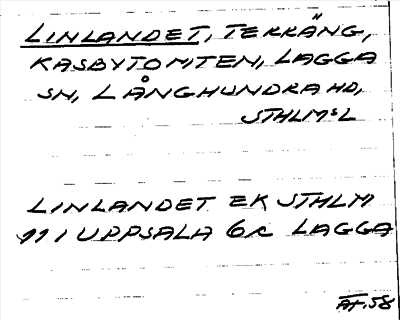 LINLANDET, TERRÄNG,
KASBYTOMTEN, LAGGA
SN, LÅNGHUNDRA HD,
STHLMS L
LINLANDET EK STHLM
111 UPPSALA 6c LAGGA
ÄT. 58